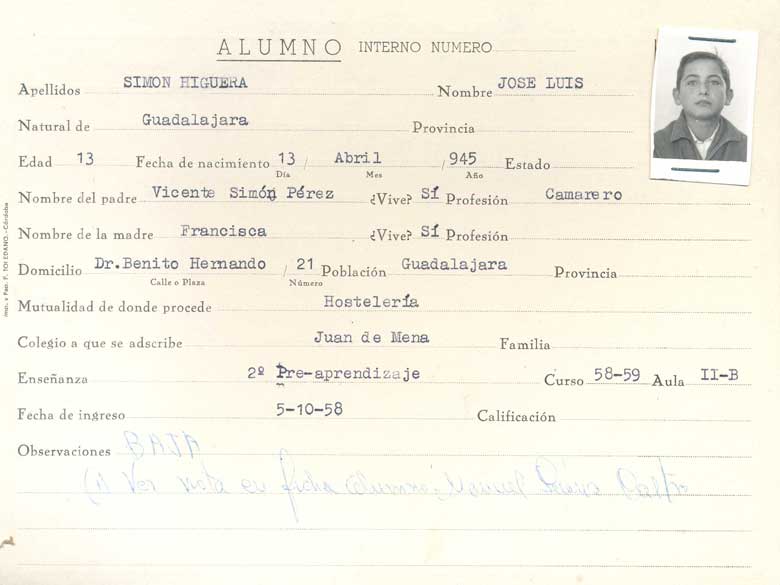 ALUMNO INTERNO NUMERO
Apellidos SIMON HIGUERA Nombre JOSE LUIS
Natural de Guadalajara Provincia
Edad 13 Fecha de nacimiento 13 / Abril / 945 Estado
Día Mes Año
Nombre del padre Vicente Simón Pérez ¿Vive? SÍ Profesión Camarero
Nombre de la madre Francisca ¿Vive? SÍ Profesión
Domicilio Dr. Benito Hernando / 21 Población Guadalajara Provincia
Calle o Plaza Número
Mutualidad de donde procede Hostelería
Colegio a que se adscribe Juan de Mena Familia
Enseñanza 2º Pre-aprendizaje Curso 58-59 Aula II-B
Fecha de ingreso 5-10-58 Calificación
Observaciones BAJA
Ver nota en ficha alumno: Manuel
Imp. y Pap. F. TOLEDANO.-Córdoba